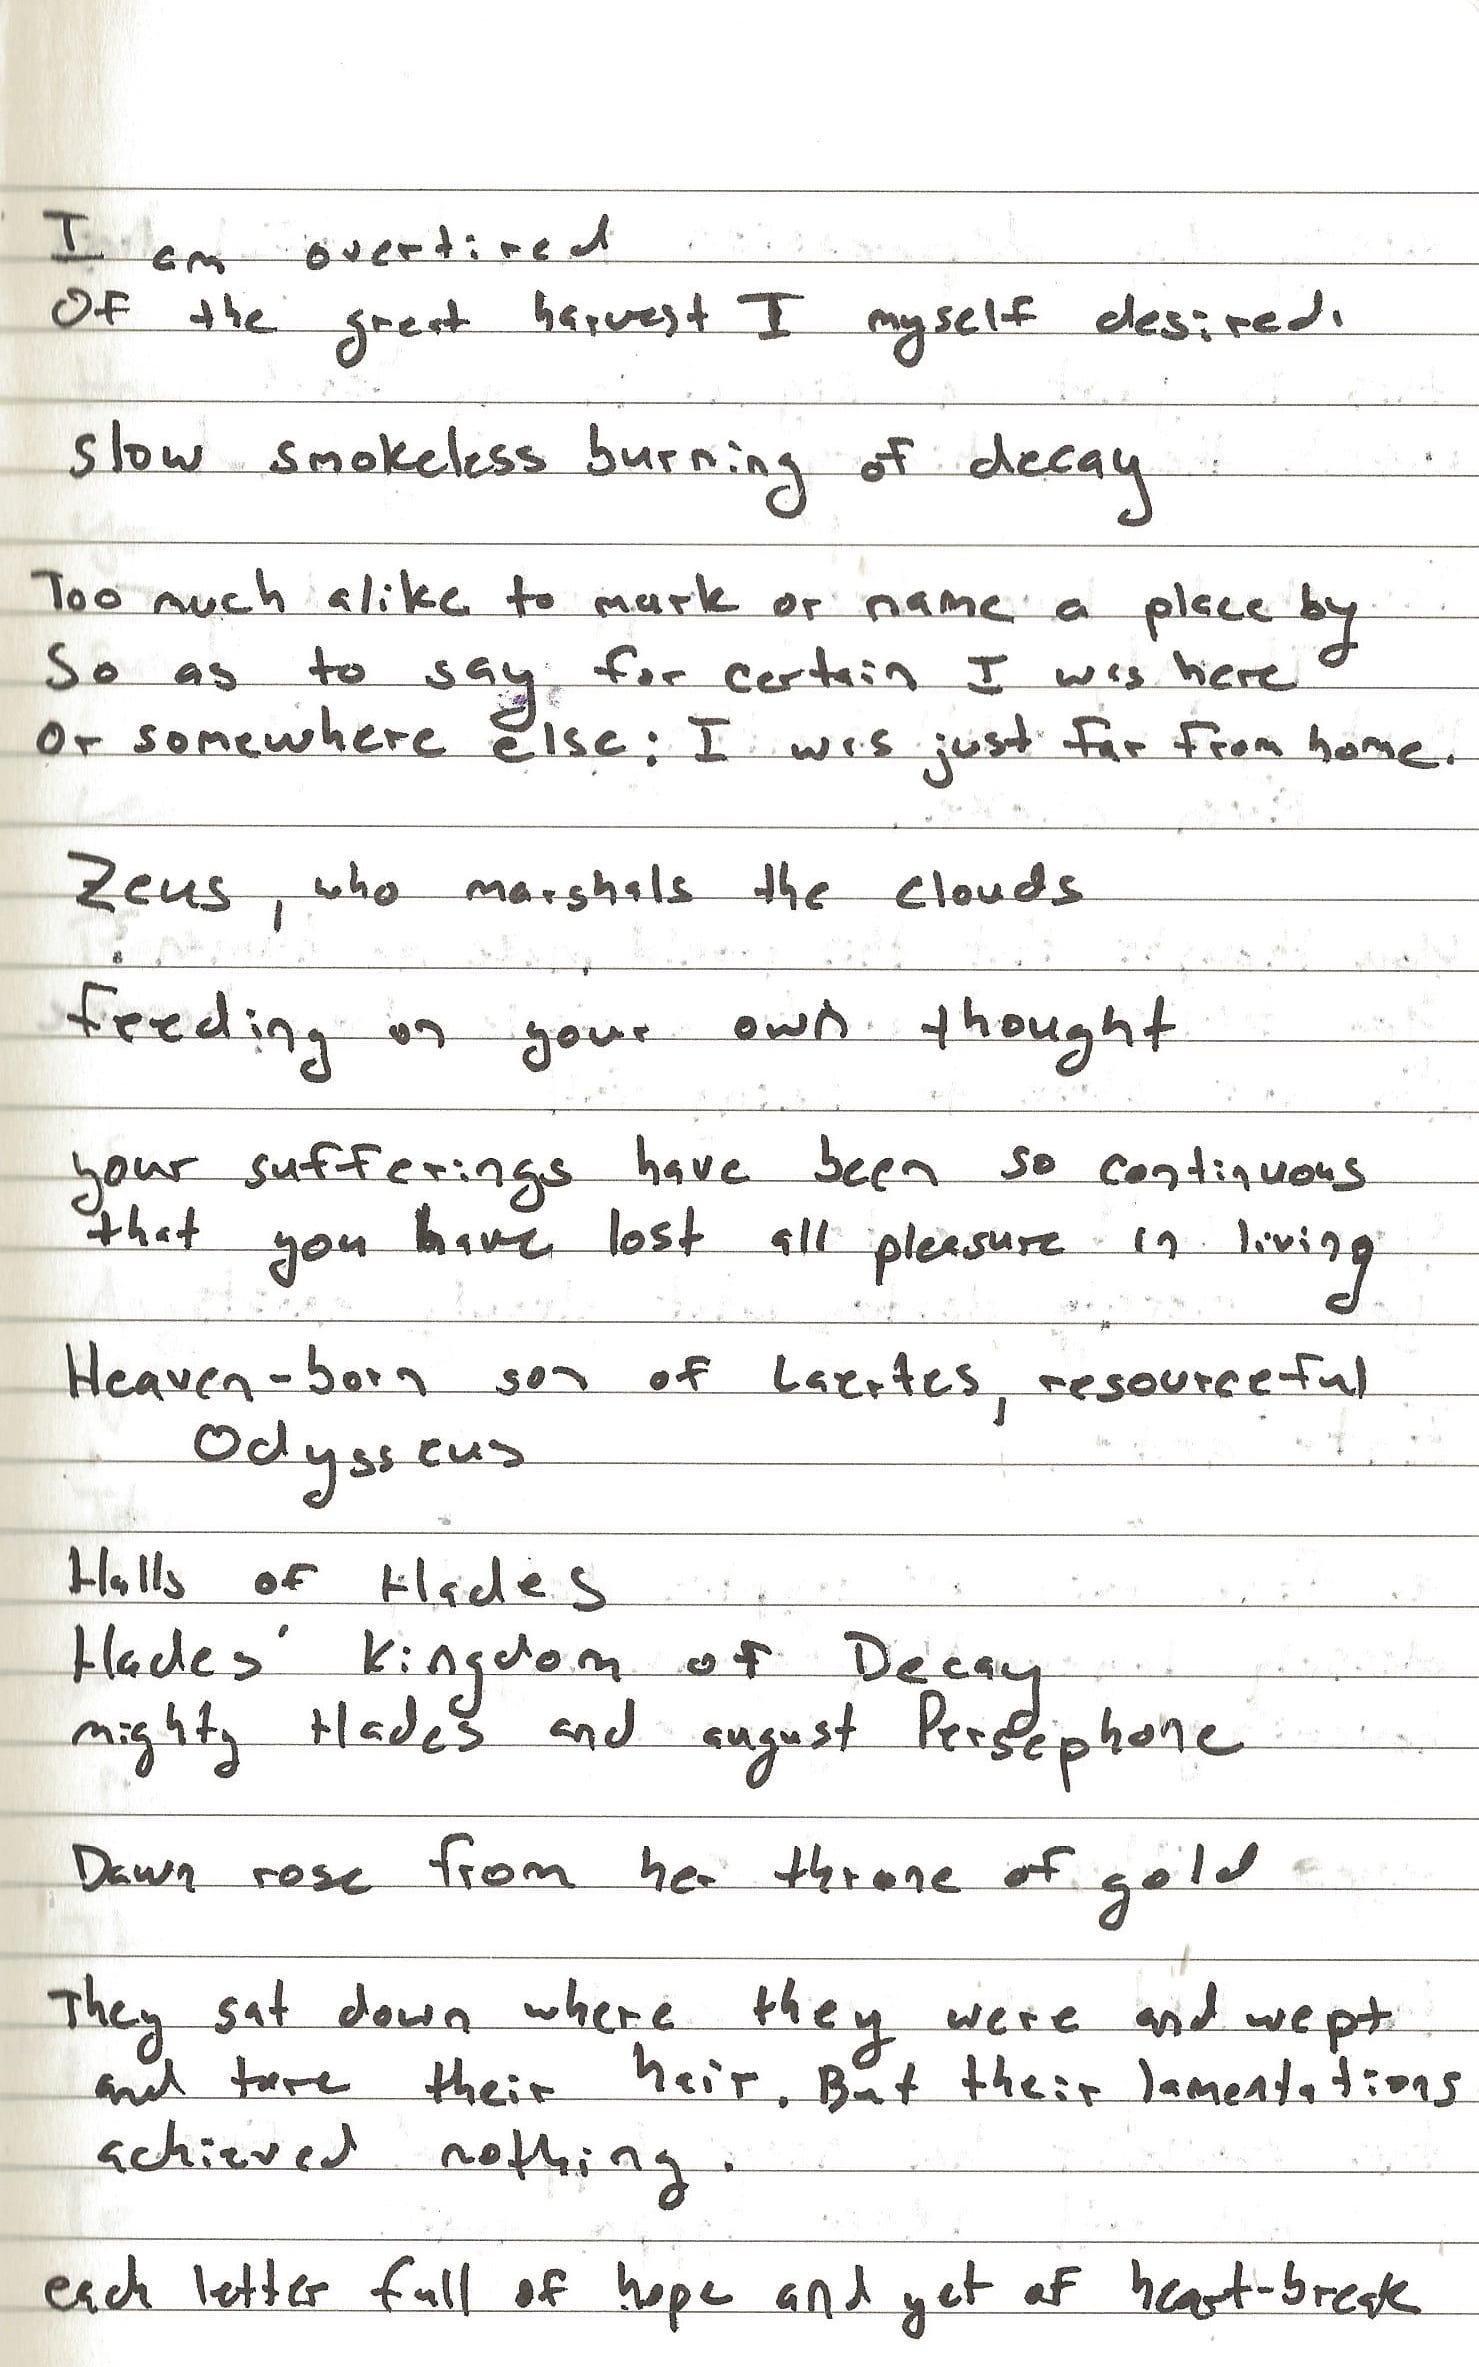 I am overtired
Of the great harvest I myself desired.
slow smokeless burning of decay
Too much alike to mark or name a place by
So as to say for certain I was here
Or somewhere else: I was just far from home.
Zeus, who marshals the clouds
feeding on your own thought
your sufferings have been so continuous
that you have lost all pleasure in living
Heaven-born son of Laertes, resourceful
Odysseus
Halls of Hades
Hades' Kingdom of Decay
mighty Hades and august Persephone
Dawn rose from her throne of gold
They sat down where they were and wept
and tore their hair. But their lamentations
achieved nothing.
each letter full of hope and yet of heart-break